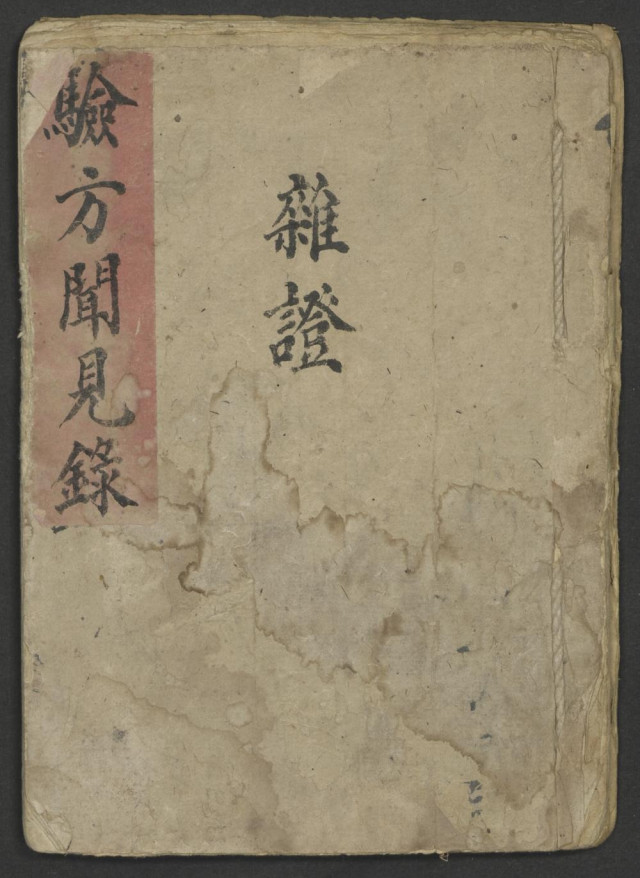 雜證
驗方聞見錄